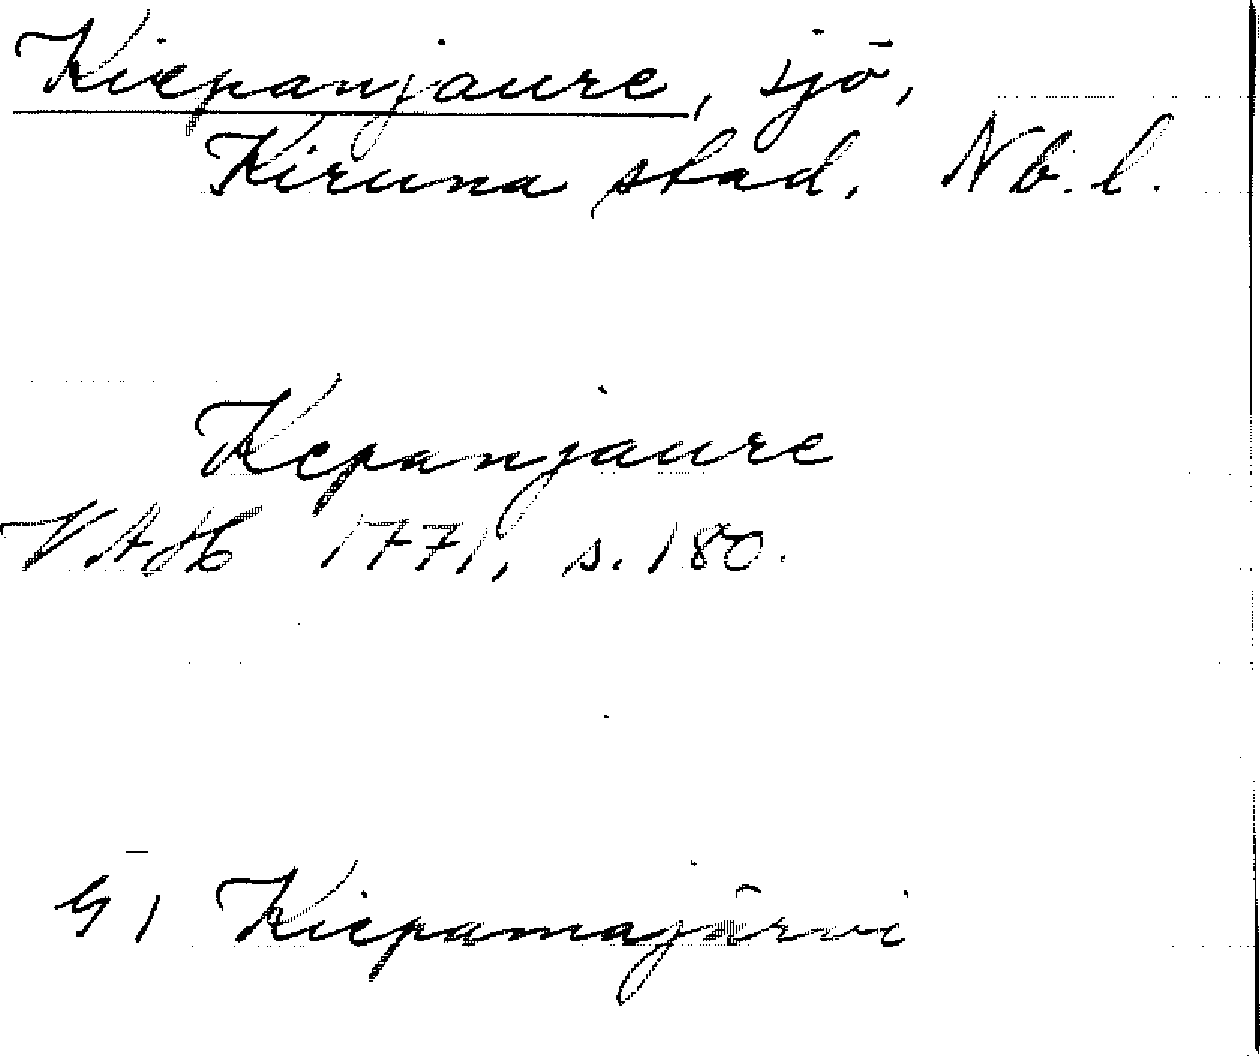 Kiepanjaure, sjö,
Kiruna stad. Nb. l.
Kepanjaure
VAH 1771, s. 180.
Kiepamajärvi